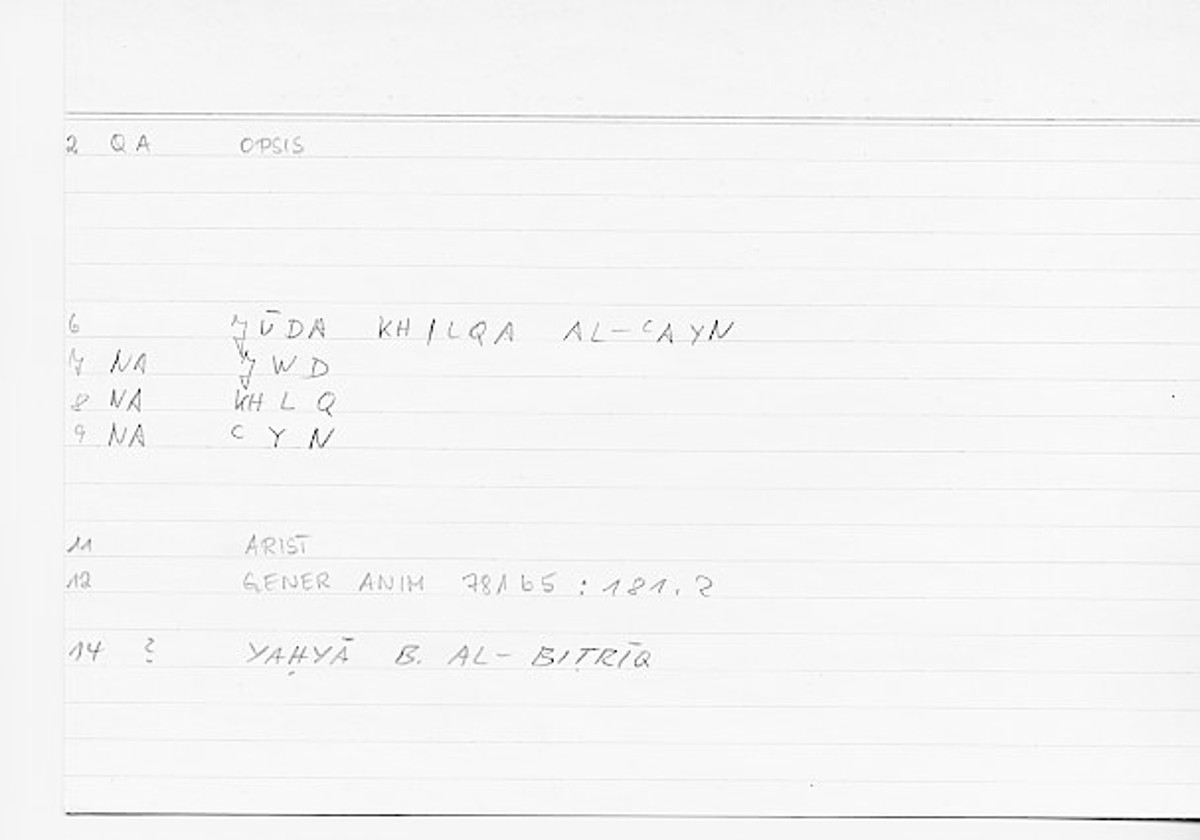 2 QA OPSIS
6 J̌ŪDA KHILQA AL-ʿAYN
7 NA J̌WD
8 NA KH L Q
9 NA ʿ Y N
11 ARIST
12 GENER ANIM 781b5 : 181.2
14 ? YAḤYĀ B. AL-BIṬRĪQ